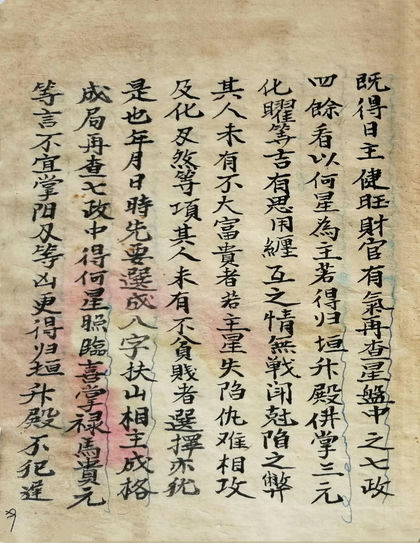 既得日主健旺財官有氣再查星盤中之七政
四餘看以何星為主若得归垣升殿併掌三元
化曜等吉有恩用纏互之情無戦闹尅陷之弊
其人未有不大富貴者若主星失陷仇难相攻
及化刄煞等項其人未有不貧賎者選擇亦犹
是也年月日時先要選成八字扶山相主成格
成局再查七政中得何星照臨喜掌禄馬貴元
等言不宜掌阳刄等凶更得归垣升殿不犯逆